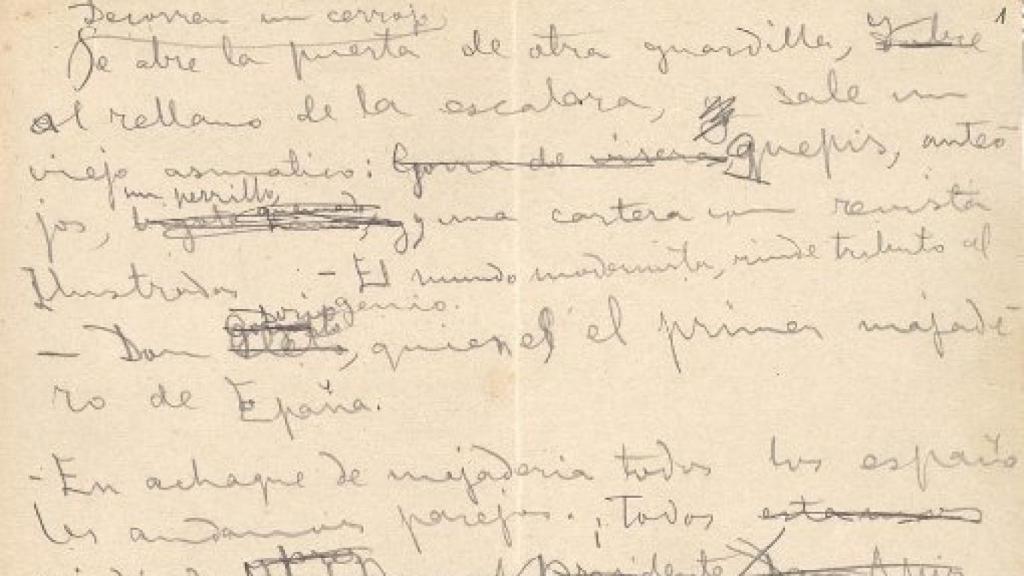 Decorren un cerrojo,
Se abre la puerta de otra guardilla, 1
al rellano de la escalera, sale un
viejo asmatico: Gorra de visera quepis, anteo
un perrillo,
jos, y una cartera con revista
Ilustradas - El mundo modernista, rinde tributo al
genio.
— Don , quien es el primer majade
ro de España.
- En achaque de majaderia todos los españo
les andamos parejos. ¡Todos estamos
Presidente